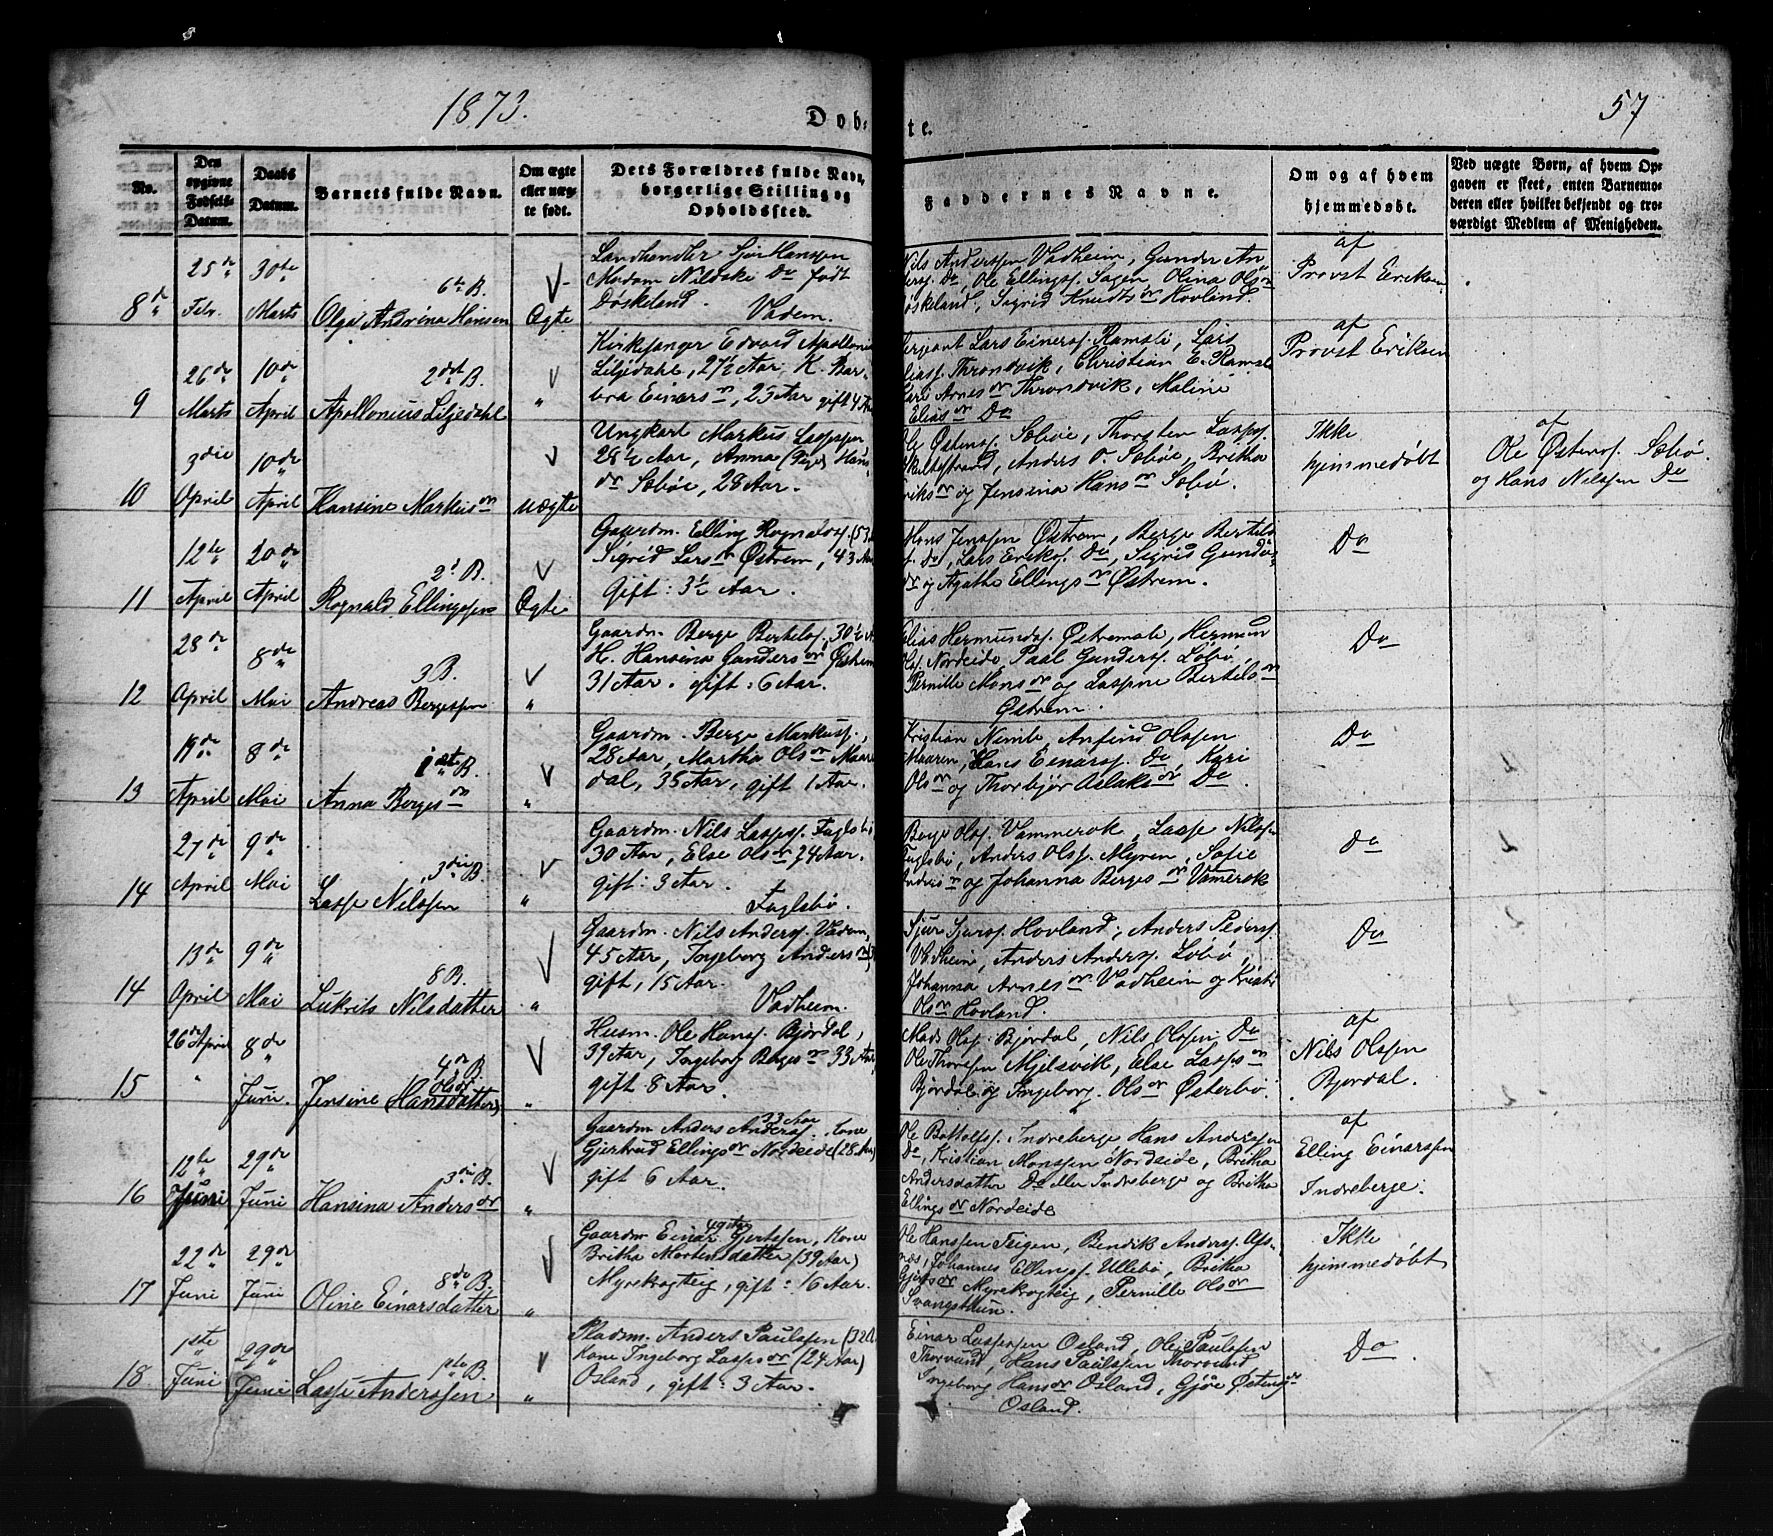 1873.
Døb-
te.
57
No.
Den opgivne Fødsels-Datum.
Daabs Datum.
Barnets fulde Navn.
Om ægte eller uæg-te født.
Dets Forældres fulde Navn, borgerlige Stilling og Opholdssted.
Faddernes Navne.
Om og af hvem hjemmedøbt.
Ved uægte Børn, af hvem Op-gaven er skeet, enten Barnemo-deren eller hvilket bekjendt og tro-værdigt Medlem af Menigheden.
8de
25de Febr.
30te Marts
6te B.
Olga Andrina Hansen
Ægte
Landhandler Sjur Hanssen
Madam Nilske Do født
Døskeland. Vadem.
Nils Anderssen Vadheim, Gunder An
dersf. Do, Ole Ellingsf. Sagen Olina Olsdr
Døskeland, Sigrid Knudtsdr Hovland.
af
Provst Eriksen
9
26de Marts
10de April
2det B.
Apollonius Liljedahl
"
Kirkesanger Edvard Apollonius
Liljedahl, 27½ Aar, K. Bar-
bra Einarsdr, 25 Aar gift 4 Aar
Sergeant Lars Einersf. Ramsli, Lars
Eliasf. Throndvik, Christian E. Ramsli
Kari Arnesdr Throndvik, Maline
Eliasdr Do
af
Provst Eriksen
10
3die April
10de April
Hansine Markusdr
uægte
Ungkarl Markus Lassesen
28½ Aar, Anna (Pige) Hans
dr Søbøe, 28 Aar.
Ole Østensf. Søbøe, Thorsten Lassesf.
Anders O. Søbøe, Britha
Eriksdr og Jensina Hansdr Søbø.
Ikke
hjemmedøbt
af
Ole Østensf. Søbø
og Hans Nilssen Do
11
12te April
20de April
2d B.
Rognald Ellingssen
Ægte
Gaardm. Elling Rognaldsf. (53
Sigrid Larsdr Østrem, 43 Aar
gift: 3½ Aar.
Hans Jenssen Østrem, Berge Bertels
f. do, Lars Eriksf. Do, Sigrid Gunders
dr og Agathe Ellingsdr Østrem.
Do
12
28de April
8de Mai
3 B.
Andreas Bergessen
"
Gaardm. Berge Bertelsf. 30½ A
H. Hansina Gundersdr Østrem
31 Aar. gift: 6 Aar.
Elias Hermundsf. Østremsli, Hermun
Olsf. Nordeide, Paal Gundersf.Løbø,
Pernille Monsdr og Lassine Bertelsdr
Østrem.
Do
13
19de April
8de Mai
1ste B.
Anna Bergesdr
"
Gaardm. Berge Markusf.,
28 Aar, Martha Olsdr Maare
dal, 35 Aar, gift 1 Aar.
Kristian Nimb, Anfind Olssen
Maaren, Hans Einarsf. Do, Kari
Olsdr og Thorbjør Aslaksdr Do
Do
14
27de April
9de Mai
3die B.
Lasse Nilssen
"
Gaardm. Nils Lassesf. Fuglsbø
30 Aar, Else Olsdr 24 Aar.
gift: 3 Aar.
Fuglsbø.
Berge Olsf. Vammerok, Lasse Nilssen
Fuglsbø, Anders Olsf. Myren, Sofie
Andersdr og Johanna Bergesdr Vamerok
Do
14
13de April
9de Mai
8 B.
Lukrits Nilsdatter
"
Gaardm. Nils Andersf. Vadem,
45 Aar, Ingeborg Andersdr
gift, 15 Aar.
Vadheim.
Sjur Sjursf. Hovland, Anders Pedersf.
Vadheim, Anders Andersf. Løbø,
Johanna Arnesdr Vadheim og Kristi
Olsdr Hovland.
Do
15
26de April
"
8de Juni.
4de B.
Olsdr
Jensine (Hansdatter)
"
Husm. Ole Hansf. Bjordal,
39 Aar, Ingeborg Bergesdr 33 Aar
gift 8 Aar.
Mads Olsf. Bjørdal, Nils Olssen, Do
Ole Thoresen Mjelsvik, Else Lassesdr
Bjordal og Ingeborg Olsdr Østerbø.
af
Nils Olssen
Bjordal.
16
12te Juni
29de Juni
3die B.
Hansina Andersdr
"
33 Aar
Gaardm Anders Andersf. Kone
Gjertrud Ellingsdr Nordeide (28 Aar)
gift 6 Aar.
Ole Bottolfsf. Indreberge Hans Anderssen
Do, Kristian Monssen Nordeide, Britha
Andersdatter Do eller Indreberge og Britha
Ellingsdr Nordeide
af
Elling Einarssen
Indreberge.
17
22de Juni
29de Juni
8de B.
Oline Einarsdatter
"
Gaardm Einar Gjertssen, Kone
Britha Mortensdatter (39 Aar)
Myrekragteig, gift: 16 Aar.
Ole Hanssen Teigen, Bendik Andersf. Ofs-
næs, Johannes Ellingsf. Ullebø, Britha
Gjertsdr Myrekragteig, Pernille Olsdr
Svangsthun.
Ikke
hjemmedøbt
18
1ste Juni
29de Juni
1ste B.
Lasse Anderssen
"
Pladsm. Anders Paulssen (32A
Kone Ingeborg Lassesdr (24 Aar)
Osland, gift: 3 Aar.
Einar Lassessen Osland, Ole Paulssen
Thorvund, Hans Paulssen Thorvund
Ingeborg Hansdr Osland, Gjøe Østensdr
Osland.
Do